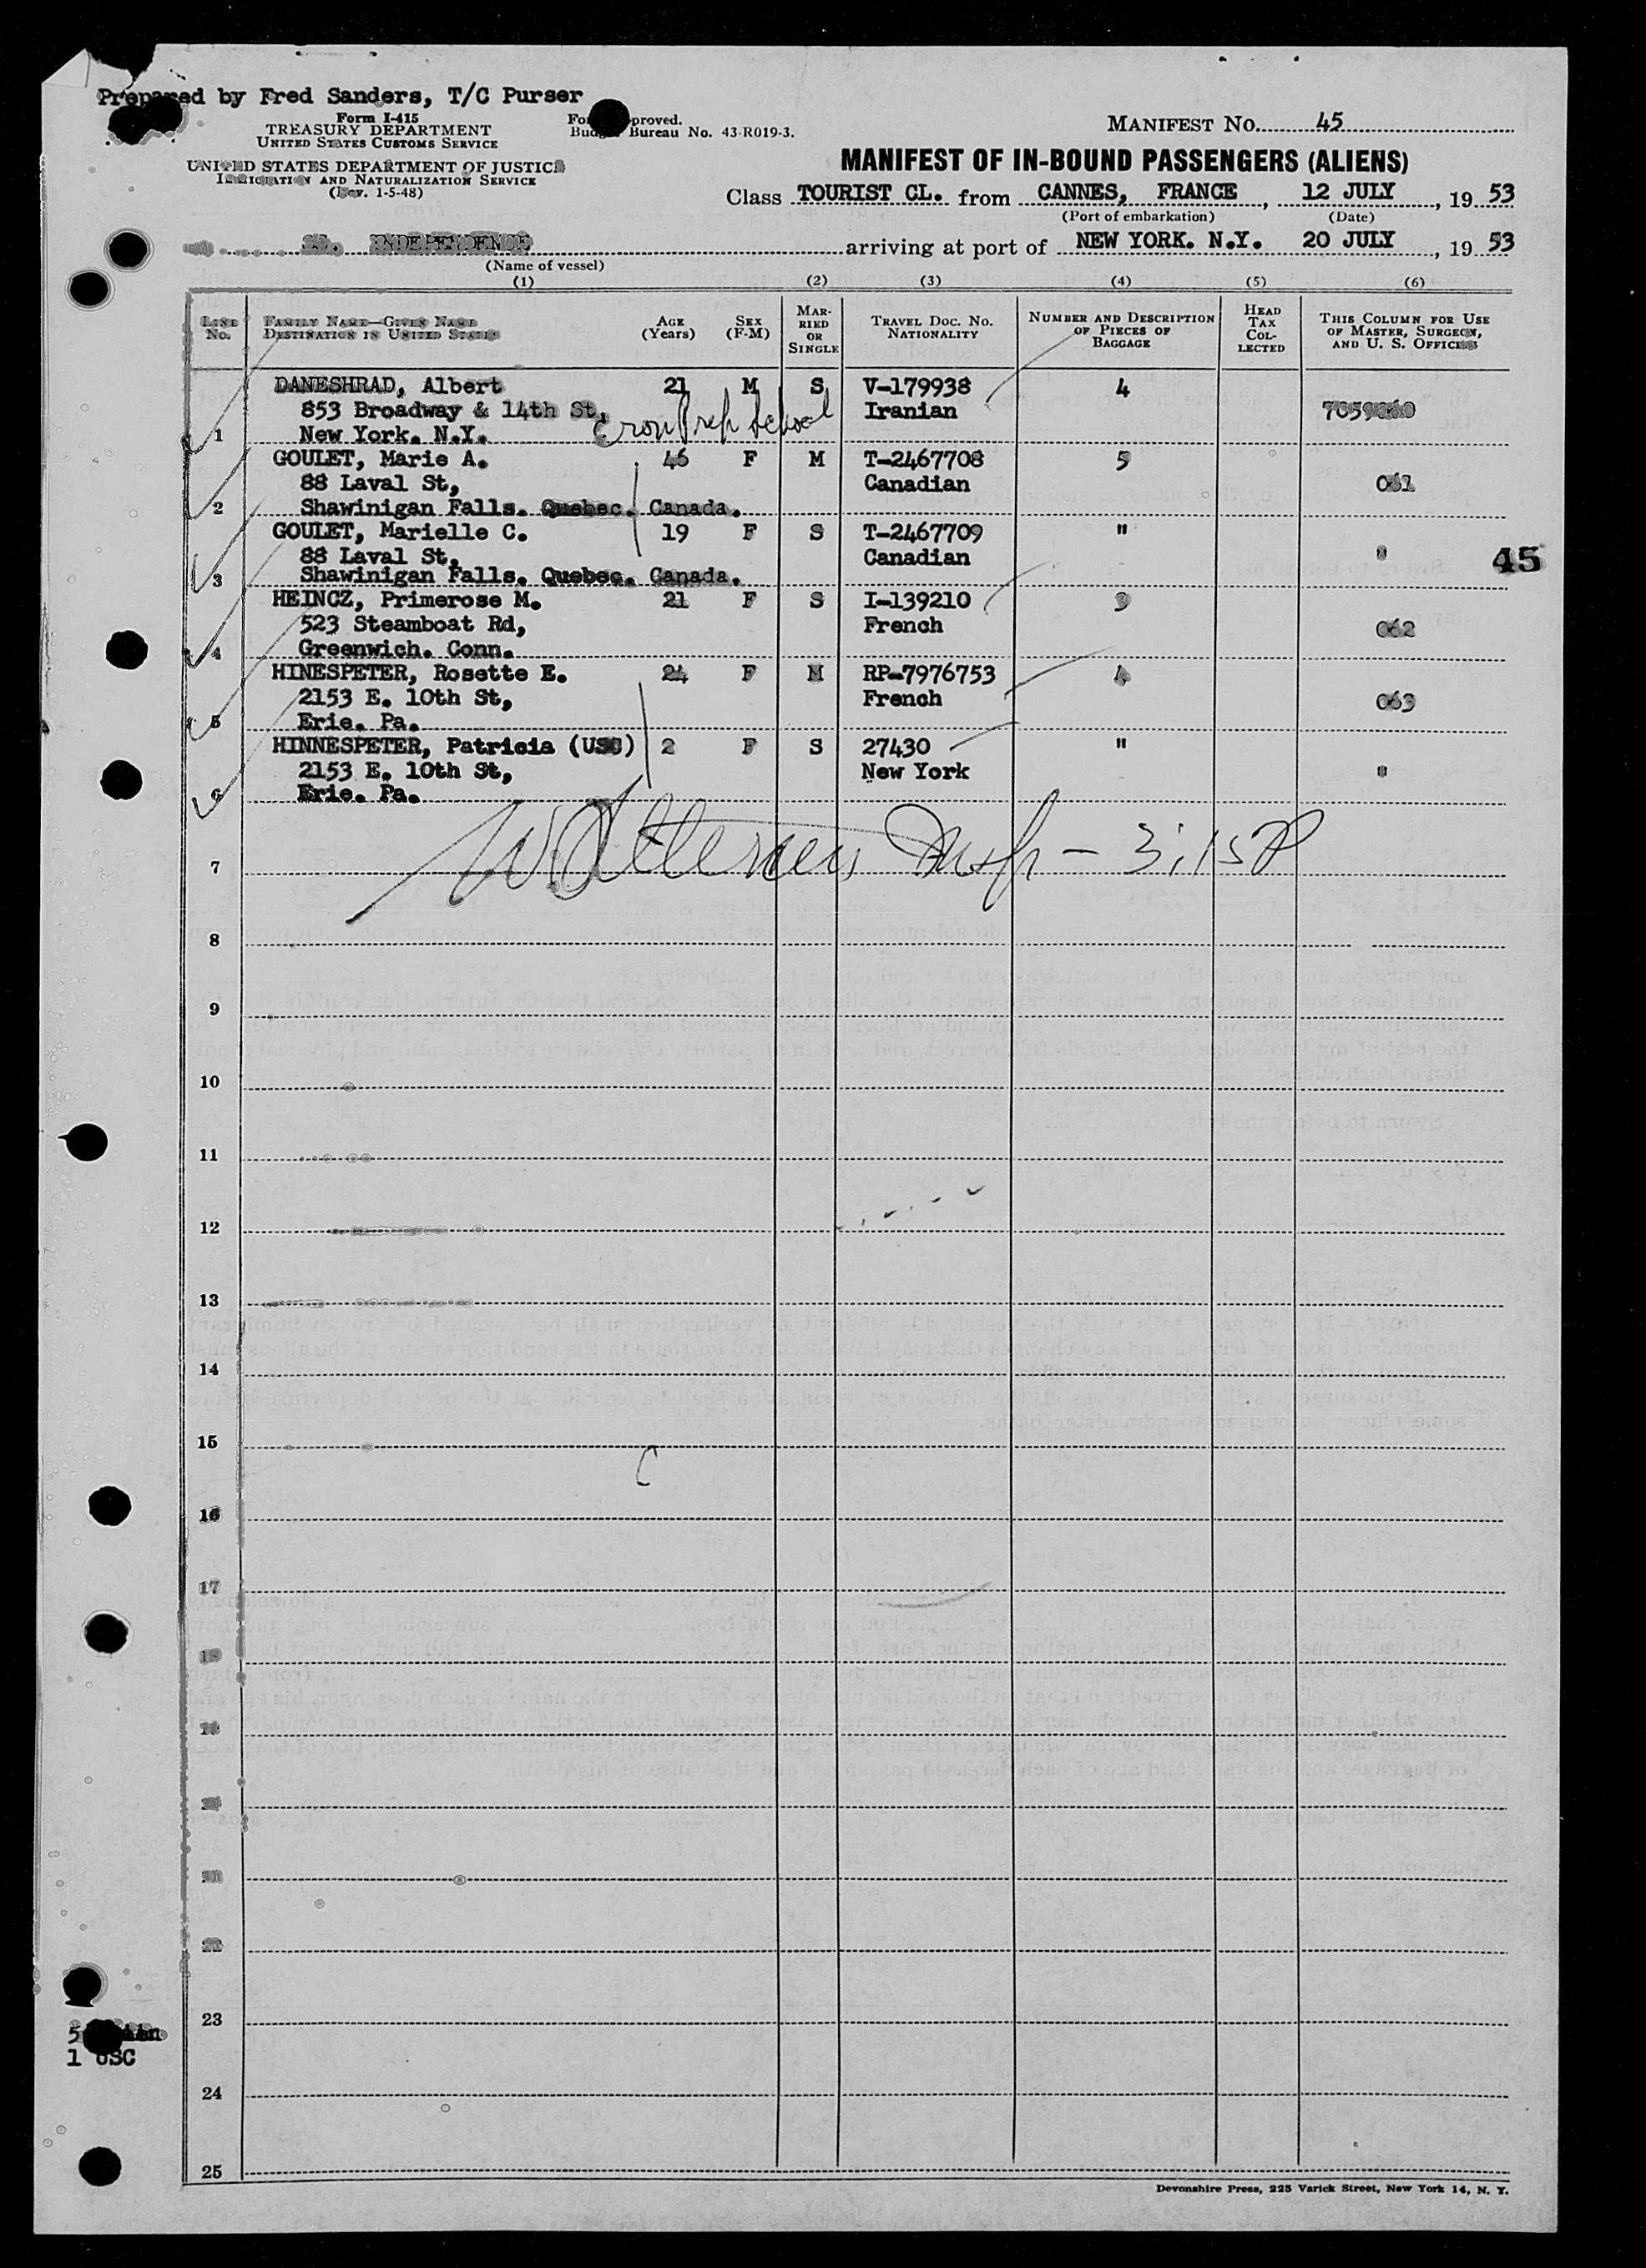 Prepared by Fred Sanders, T/C Purser
Form I-415
TREASURY DEPARTMENT
UNITED STATES CUSTOMS SERVICE
UNITED STATES DEPARTMENT OF JUSTICE
IMMIGRATION AND NATURALIZATION SERVICE
(Rev. 1-5-48)
Form Approved.
Budget Bureau No. 43-R019-3.
MANIFEST NO. 45
MANIFEST OF IN-BOUND PASSENGERS (ALIENS)
Class TOURIST CL. from CANNES, FRANCE, 12 JULY, 19 53
(Port of embarkation) (Date)
INDEPENDENCE arriving at port of NEW YORK. N.Y. 20 JULY, 19 53
(Name of vessel)
(1) (2) (3) (4) (5) (6)
LINE No.
FAMILY NAME—GIVEN NAME
DESTINATION IN UNITED STATES
AGE (Years)
SEX (F-M)
MARRIED OR SINGLE
TRAVEL DOC. NO. NATIONALITY
NUMBER AND DESCRIPTION OF PIECES OF BAGGAGE
HEAD TAX COLLECTED
THIS COLUMN FOR USE OF MASTER, SURGEON, AND U. S. OFFICERS
DANESHRAD, Albert 21 M S V-179938 4
853 Broadway & 14th St, Iranian
1 New York. N.Y. Eron Prep School
GOULET, Marie A. 46 F M T-2467708 5
88 Laval St, Canadian 061
2 Shawinigan Falls. Quebec. Canada.
GOULET, Marielle C. 19 F S T-2467709 "
88 Laval St, Canadian " 45
3 Shawinigan Falls. Quebec. Canada.
HEINCZ, Primerose M. 21 F S I-139210 3
523 Steamboat Rd, French 062
4 Greenwich. Conn.
HINESPETER, Rosette E. 24 F M RP-7976753 4
2153 E. 10th St, French 063
5 Erie. Pa.
HINNESPETER, Patricia (USC) 2 F S 27430 "
2153 E. 10th St, New York "
6 Erie. Pa.
7 Insp - 3:15 P
8
9
10
11
12
13
14
15
16
17
18
23
1 USC
24
25
Devonshire Press, 225 Varick Street, New York 14, N. Y.